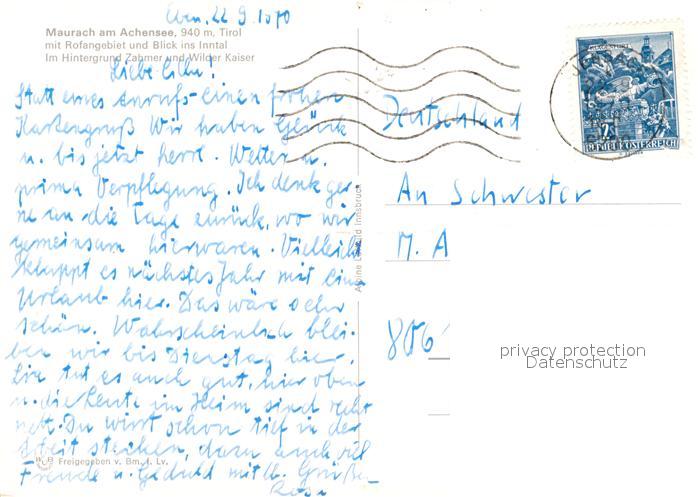 Eben, 22.9.1970
Maurach am Achensee, 940 m, Tirol
mit Rofangebiet und Blick ins Inntal
Im Hintergrund Zahmer und Wilder Kaiser
Liebe
Statt eines Anrufs einen frohen
Kartengruß Wir haben Glück
u. bis jetzt herrl. Wetter u.
prima Verpflegung. Ich denk ger-
ne an die Tage zurück, wo wir
gemeinsam hierwaren. Vielleicht
klappt es nächstes Jahr mit eine
Urlaub hier. Das wäre sehr
schön. Wahrscheinlich blei-
ben wir bis Dienstag hier.
tut es auch gut, hier oben
u. die Leute im Heim sind recht
nett. Du wirst schon tief in der
Arbeit stecken, dazu auch viel
Freude u. Geduld mit lb. Grüße
Rosa
Freigegeben v. Bm. f. Lv.
Alpine Luftbild Innsbruck
2S
REPUBLIK ÖSTERREICH
Deutschland
An Schwester
M. A
806
privacy protection
Datenschutz